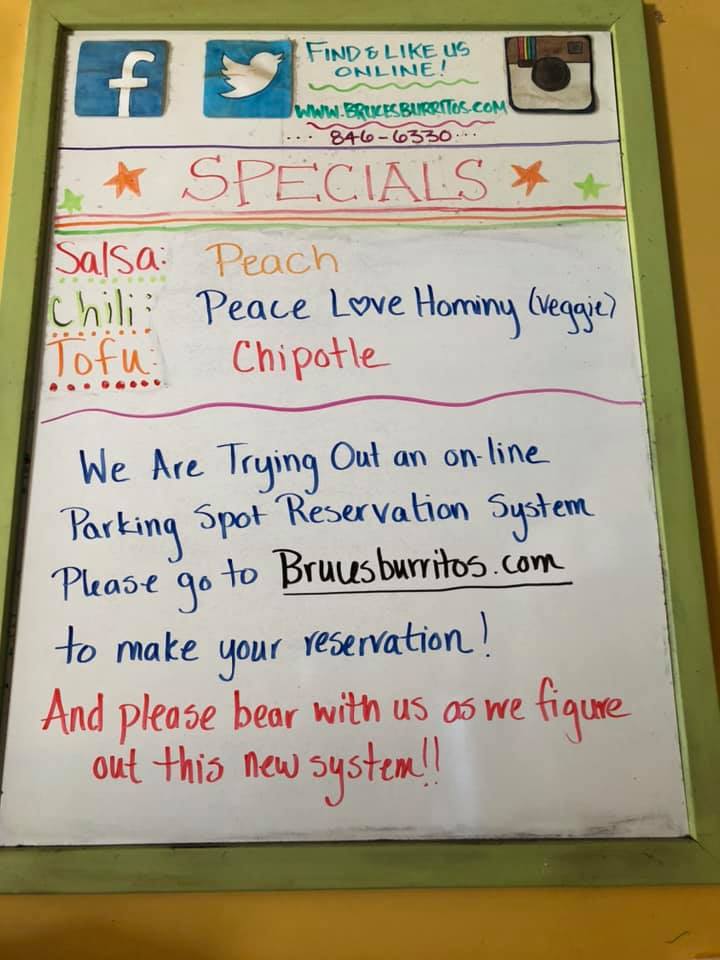 f
FIND & LIKE US
ONLINE!
WWW.BRUCESBURRITOS.COM
... 846-6330 ...
SPECIALS
Salsa: Peach
Chili: Peace Love Hominy (Veggie)
Tofu: Chipotle
We Are Trying Out an on-line
Parking Spot Reservation System
Please go to Brucesburritos.com
to make your reservation!
And please bear with us as we figure
out this new system!!